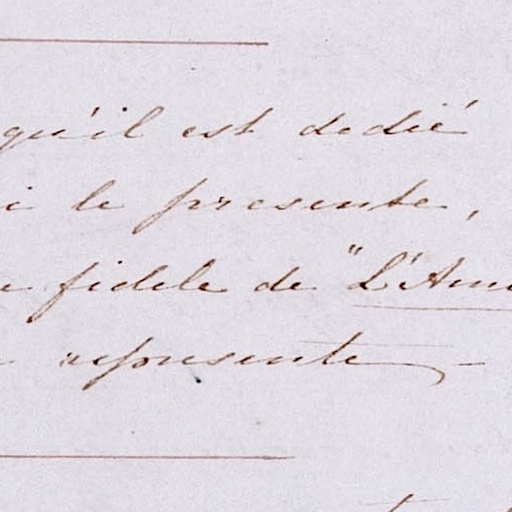 qu'il est dedié
i le presente,
e fidele de "L'Ami
represente